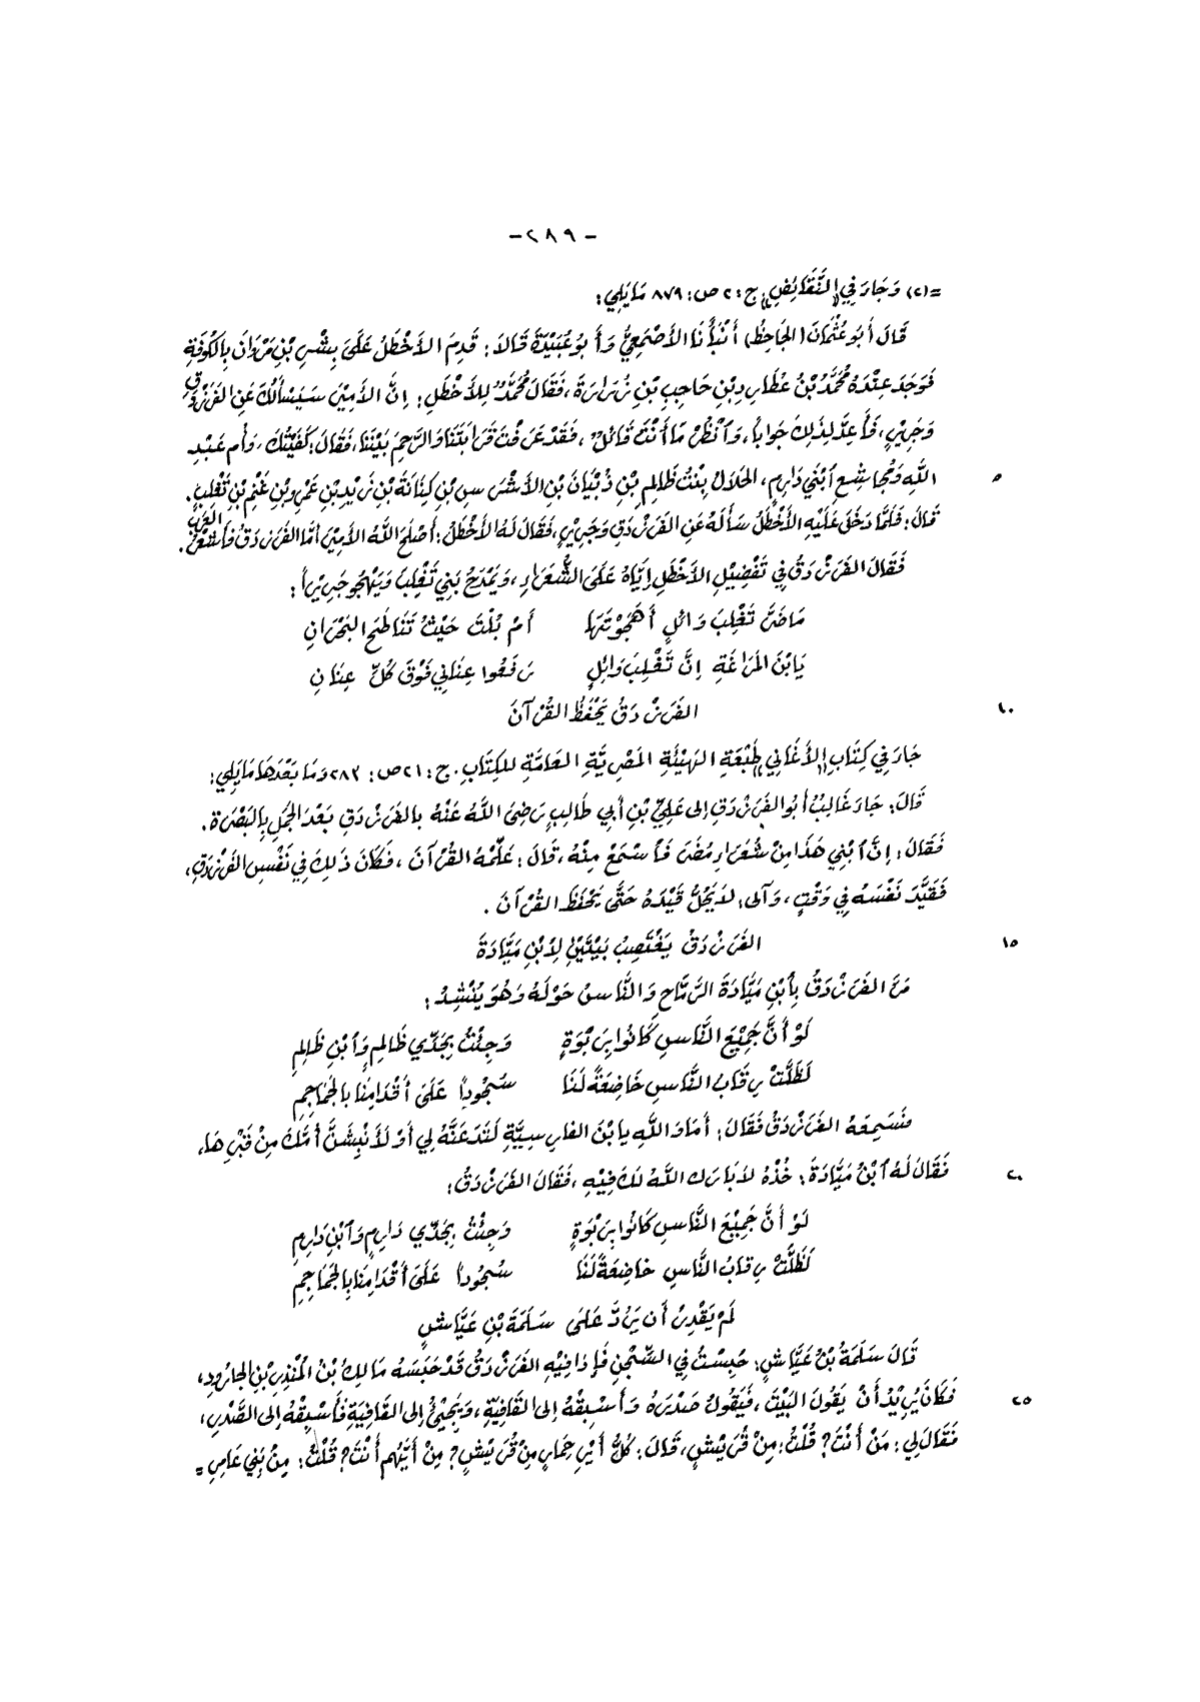 -٢٨٩-
=(٢) وَجَاءَ فِي «النَّقَائِضِ» ج: ٢ ص: ٨٧٩ مَا يَلِي:
قَالَ أَبُو عُثْمَانَ (الجَاحِظُ) أَنْبَأَنَا الأَصْمَعِيُّ وَأَبُو عُبَيْدَةَ قَالَا: قَدِمَ الأَخْطَلُ عَلَى بِشْرِ بْنِ مَرْوَانَ بِالكُوفَةِ
فَوَجَدَ عِنْدَهُ مُحَمَّدَ بْنَ عُطَارِدِ بْنِ حَاجِبِ بْنِ زُرَارَةَ، فَقَالَ مُحَمَّدٌ لِلأَخْطَلِ: إِنَّ الأَمِيْرَ سَيَسْأَلُكَ عَنِ الفَرَزْدَقِ
وَجَرِيْرٍ، فَأَعِدَّ لِذَلِكَ جَوَاباً، وَآنْظُرْ مَا أَنْتَ قَائِلٌ، فَقَدْ عَرَفْتَ قَرَابَتَنَا وَالرَّحِمَ بَيْنَنَا، فَقَالَ: كَفَيْتُكَ، وَأُم عَبْدِ
اللَّهِ وَمُجَاشِعٍ آبْنَي دَارِمٍ، الحَلَالُ بِنْتُ ظَالِمِ بْنِ ذُبْيَانَ بْنِ الأَشْرَسِ بْنِ كِنَانَةَ بْنِ زَيْدِ بْنِ عَمْرِو بْنِ غَنْمِ بْنِ تَغْلِبَ. ٥
قَالَ: فَلَمَّا دَخَلَ عَلَيْهِ الأَخْطَلُ سَأَلَهُ عَنِ الفَرَزْدَقِ وَجَرِيْرٍ، فَقَالَ لَهُ الأَخْطَلُ: أَصْلَحَ اللَّهُ الأَمِيْرَ أَمَّا الفَرَزْدَقُ فَأَشْعَرُ العَرَبِ.
فَقَالَ الفَرَزْدَقُ فِي تَفْضِيْلِ الأَخْطَلِ إِيَّاهُ عَلَى الشُّعَرَاءِ، وَيَمْدَحُ بَنِي تَغْلِبَ وَيَهْجُو جَرِيْراً:
مَا ضَرَّ تَغْلِبَ وَائِلٍ أَهَجَوْتَهَا أَمْ بُلْتَ حَيْثُ تَنَاطَحَ البَحْرَانِ
يَا بْنَ المَرَاغَةِ إِنَّ تَغْلِبَ وَائِلٍ رَفَعُوا عِنَانِي فَوْقَ كُلِّ عِنَانِ
الفَرَزْدَقُ يَحْفَظُ القُرْآنَ ١٠
جَاءَ فِي كِتَابِ «الأَغَانِي» طَبْعَةِ الهَيْئَةِ المَصْرِيَّةِ العَامَّةِ لِلكِتَابِ. ج: ٢١ ص: ٢٨٣ وَمَا بَعْدَهَا مَا يَلِي:
قَالَ: جَاءَ غَالِبٌ أَبُو الفَرَزْدَقِ إِلَى عَلِيِّ بْنِ أَبِي طَالِبٍ رَضِيَ اللَّهُ عَنْهُ بِالفَرَزْدَقِ بَعْدَ الجَمَلِ بِالبَصْرَةِ.
فَقَالَ: إِنَّ آبْنِي هَذَا مِنْ شُعَرَاءِ مُضَرَ فَآسْمَعْ مِنْهُ، قَالَ: عَلِّمْهُ القُرْآنَ، فَكَانَ ذَلِكَ فِي نَفْسِ الفَرَزْدَقِ،
فَقَيَّدَ نَفْسَهُ فِي وَقْتٍ، وَآلَى: لَا يَحُلُّ قَيْدَهُ حَتَّى يَحْفَظَ القُرْآنَ.
الفَرَزْدَقُ يَغْتَصِبُ بَيْتَيْنِ لِآبْنِ مَيَّادَةَ ١٥
مَرَّ الفَرَزْدَقُ بِآبْنِ مَيَّادَةَ الرَّمَّاحِ وَالنَّاسُ حَوْلَهُ وَهُوَ يُنْشِدُ:
لَوْ أَنَّ جَمِيْعَ النَّاسِ كَانُوا بِرَبْوَةٍ وَجِئْتُ بِجَدِّي ظَالِمٍ وَآبْنِ ظَالِمِ
لَظَلَّتْ رِقَابُ النَّاسِ خَاضِعَةً لَنَا سُجُوداً عَلَى أَقْدَامِنَا بِالجَمَاجِمِ
فَسَمِعَهُ الفَرَزْدَقُ فَقَالَ: أَمَا وَاللَّهِ يا بْنَ الفَارِسِيَّةِ لَتَدَعَنَّهُ لِي أَوْ لَأَنْبِشَنَّ أُمَّكَ مِنْ قَبْرِهَا،
فَقَالَ لَهُ آبْنُ مَيَّادَةَ: خُذْهُ لَا بَارَكَ اللَّهُ لَكَ فِيْهِ، فَقَالَ الفَرَزْدَقُ: ٢٠
لَوْ أَنَّ جَمِيْعَ النَّاسِ كَانُوا بِرَبْوَةٍ وَجِئْتُ بِجَدِّي دَارِمٍ وَآبْنِ دَارِمِ
لَظَلَّتْ رِقَابُ النَّاسِ خَاضِعَةً لَنَا سُجُوداً عَلَى أَقْدَامِنَا بِالجَمَاجِمِ
لَمْ يَقْدِرْ أَن يَرُدَّ عَلَى سَلَمَةَ بْنِ عَيَّاشٍ
قَالَ سَلَمَةُ بْنُ عَيَّاشٍ: حُبِسْتُ فِي السِّجْنِ فَإِذَا فِيْهِ الفَرَزْدَقُ قَدْ حَبَسَهُ مَالِكُ بْنُ المُنْذِرِ بْنِ الجَارُودِ،
فَكَانَ يُرِيْدُ أَنْ يَقُولَ البَيْتَ، فَيَقُولُ صَدْرَهُ وَأَسْبِقُهُ إِلَى القَافِيَةِ، وَيَجِيْءُ إِلَى القَافِيَةِ فَأَسْبِقُهُ إِلَى الصَّدْرِ، ٢٥
فَقَالَ لِي: مَنْ أَنْتَ؟ قُلْتُ: مِنْ قُرَيْشٍ، قَالَ: كُلُّ أَيْرِ حِمَارٍ مِنْ قُرَيْشٍ؟ مِنْ أَيِّهِم أَنْتَ؟ قُلْتُ: مِنْ بَنِي عَامِرِ =